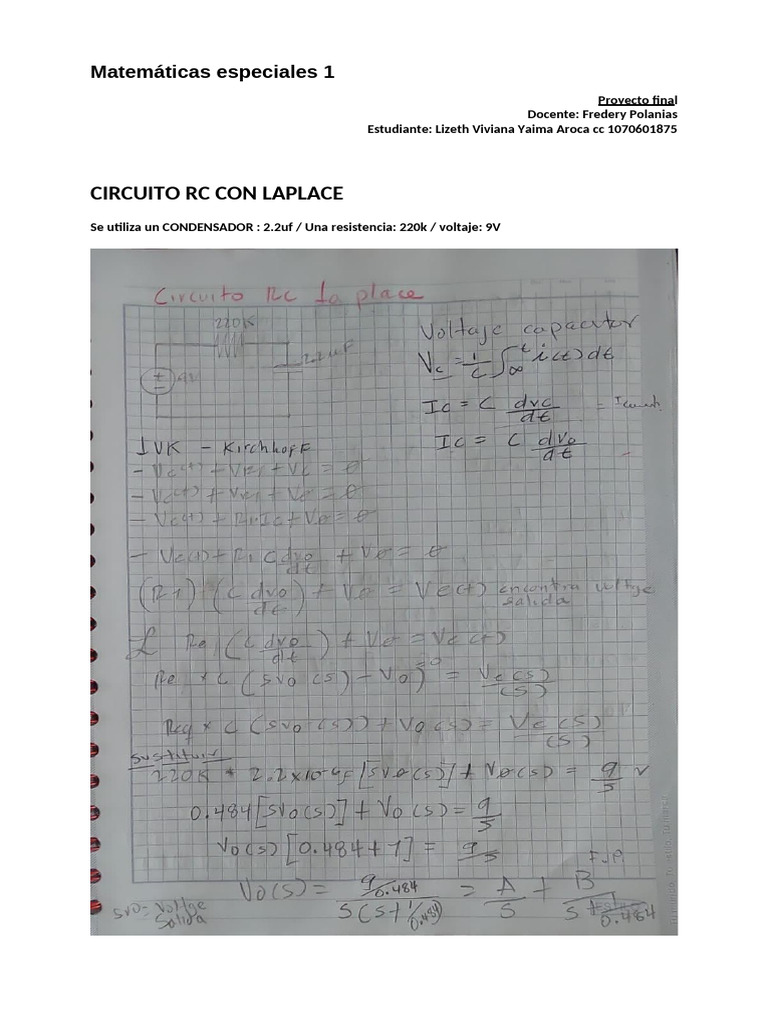 Matemáticas especiales 1
Proyecto final
Docente: Fredery Polanias
Estudiante: Lizeth Viviana Yaima Aroca cc 1070601875
CIRCUITO RC CON LAPLACE
Se utiliza un CONDENSADOR : 2.2uf / Una resistencia: 220k / voltaje: 9V
Circuito RC la place
220K
2.2uF
9V
Voltaje capacitor
Vc = 1/C ∫∞^t i(t) dt
Ic = C dvc/dt =
Ic = C dvo/dt
LVK - Kirchhoff
- Vc(t) + VR1 + Vc = 0
- Vc(t) + VR1 + Vo = 0
- Vc(t) + R1.Ic + Vo = 0
- Vc(t) + R1 C dvo/dt + Vo = 0
(R1) (C dvo/dt) + Vo = Ve(t) encontra voltge salida
L Re (C dvo/dt) + Vo = Ve(t)
Re * C (SVo(s) - Vo) = Ve(s)/(s)
Req * C (SVo(s)) + Vo(s) = Ve(s)/(s)
Sustituir
220K * 2.2x10^-6F [SVo(s)] + Vo(s) = 9/s V
0.484 [SVo(s)] + Vo(s) = 9/s
Vo(s) [0.484 + 1] = 9/s
F.P.
Vo(s) = 9/0.484 / S(S + 1/0.484) = A/S + B/S + 0.484
SVO = Voltge Salida